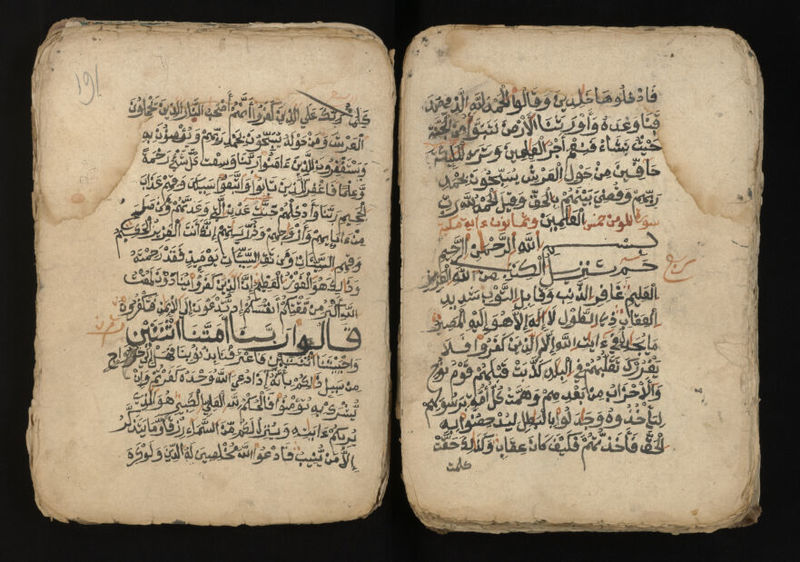 فادخلوها خلدين وقالوا الحمد لله الذي صد
قنا وعده وأورثنا الأرض نتبوأ من الجنة
حيث نشاء فنعم أجر العملين وترى الملئكة
حافين من حول العرش يسبحون بحمد
ربهم وقضي بينهم بالحق وقيل الحمد لله رب
سورة المومن خمس العلمين وثمانون ءاية مكية
بسم الله الرحمن الرحيم
حم تنزيل الكتب من الله العزيز
العليم غافر الذنب وقابل التوب شديد
العقاب ذي الطول لا إله إلا هو إليه المصير
ما يجدل في ءايت الله إلا الذين كفروا فلا
يغررك تقلبهم في البلد كذبت قبلهم قوم نوح
والأحزاب من بعدهم وهمت كل أمة برسولهم
ليأخذوه وجدلوا بالبطل ليدحضوا به
الحق فأخذتهم فكيف كان عقاب وكذلك حقت
كلمت
191
كلمت ربك على الذين كفروا أنهم أصحب النار الذين يحملون
العرش ومن حوله يسبحون بحمد ربهم ويؤمنون به
ويستغفرون للذين ءامنوا ربنا وسعت كل شيء رحمة
وعلما فاغفر للذين تابوا واتبعوا سبيلك وقهم عذاب
الجحيم ربنا وأدخلهم جنت عدن التي وعدتهم ومن صلح
من ءابائهم وأزوجهم وذريتهم إنك أنت العزيز الحكيم
وقهم السيئات ومن تق السيئات يومئذ فقد رحمته
وذلك هو الفوز العظيم إن الذين كفروا ينادون لمقت
الله أكبر من مقتكم أنفسكم إذ تدعون إلى الإيمن فتكفرون
قالوا ربنا أمتنا اثنتين
وأحييتنا اثنتين فاعترفنا بذنوبنا فهل إلى خروج
من سبيل ذلكم بأنه إذا دعي الله وحده كفرتم وإن
يشرك به تؤمنوا فالحكم لله العلي الكبير هو الذي
يريكم ءايته وينزل لكم من السماء رزقا وما يتذكر
إلا من ينيب فادعوا الله مخلصين له الدين ولو كره